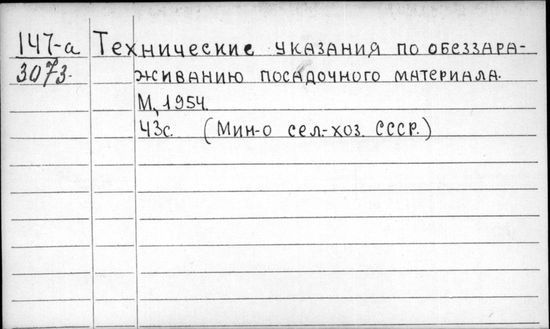 147-а Технические указания по обеззара-
3073. живанию посадочного материала.
М., 1954.
43с. (Мин-о сел.-хоз. СССР.)